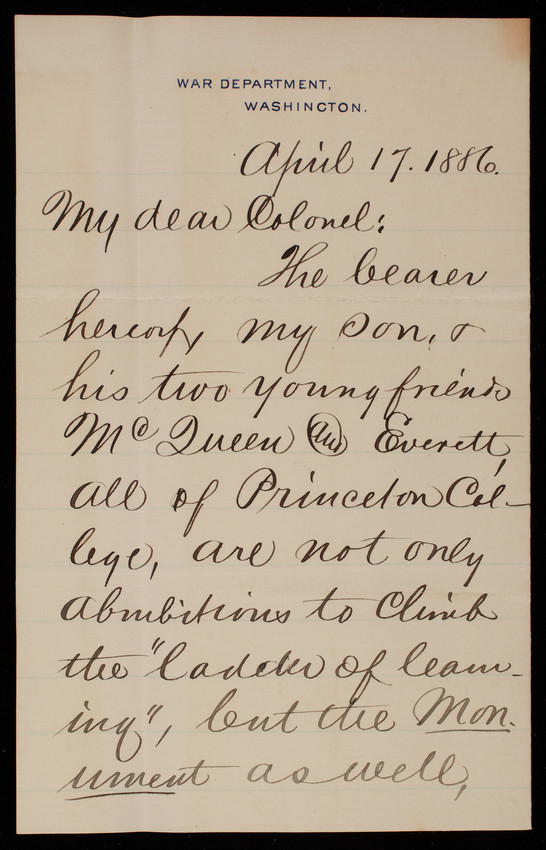 WAR DEPARTMENT,
WASHINGTON.
April 17. 1886.
My dear Colonel:
The bearer
hereof, my son, &
his two young friends
McQueen and Everett,
all of Princeton Col-
lege, are not only
abmbitious to climb
the "ladder of learn-
ing", but the Mon-
ument as well,